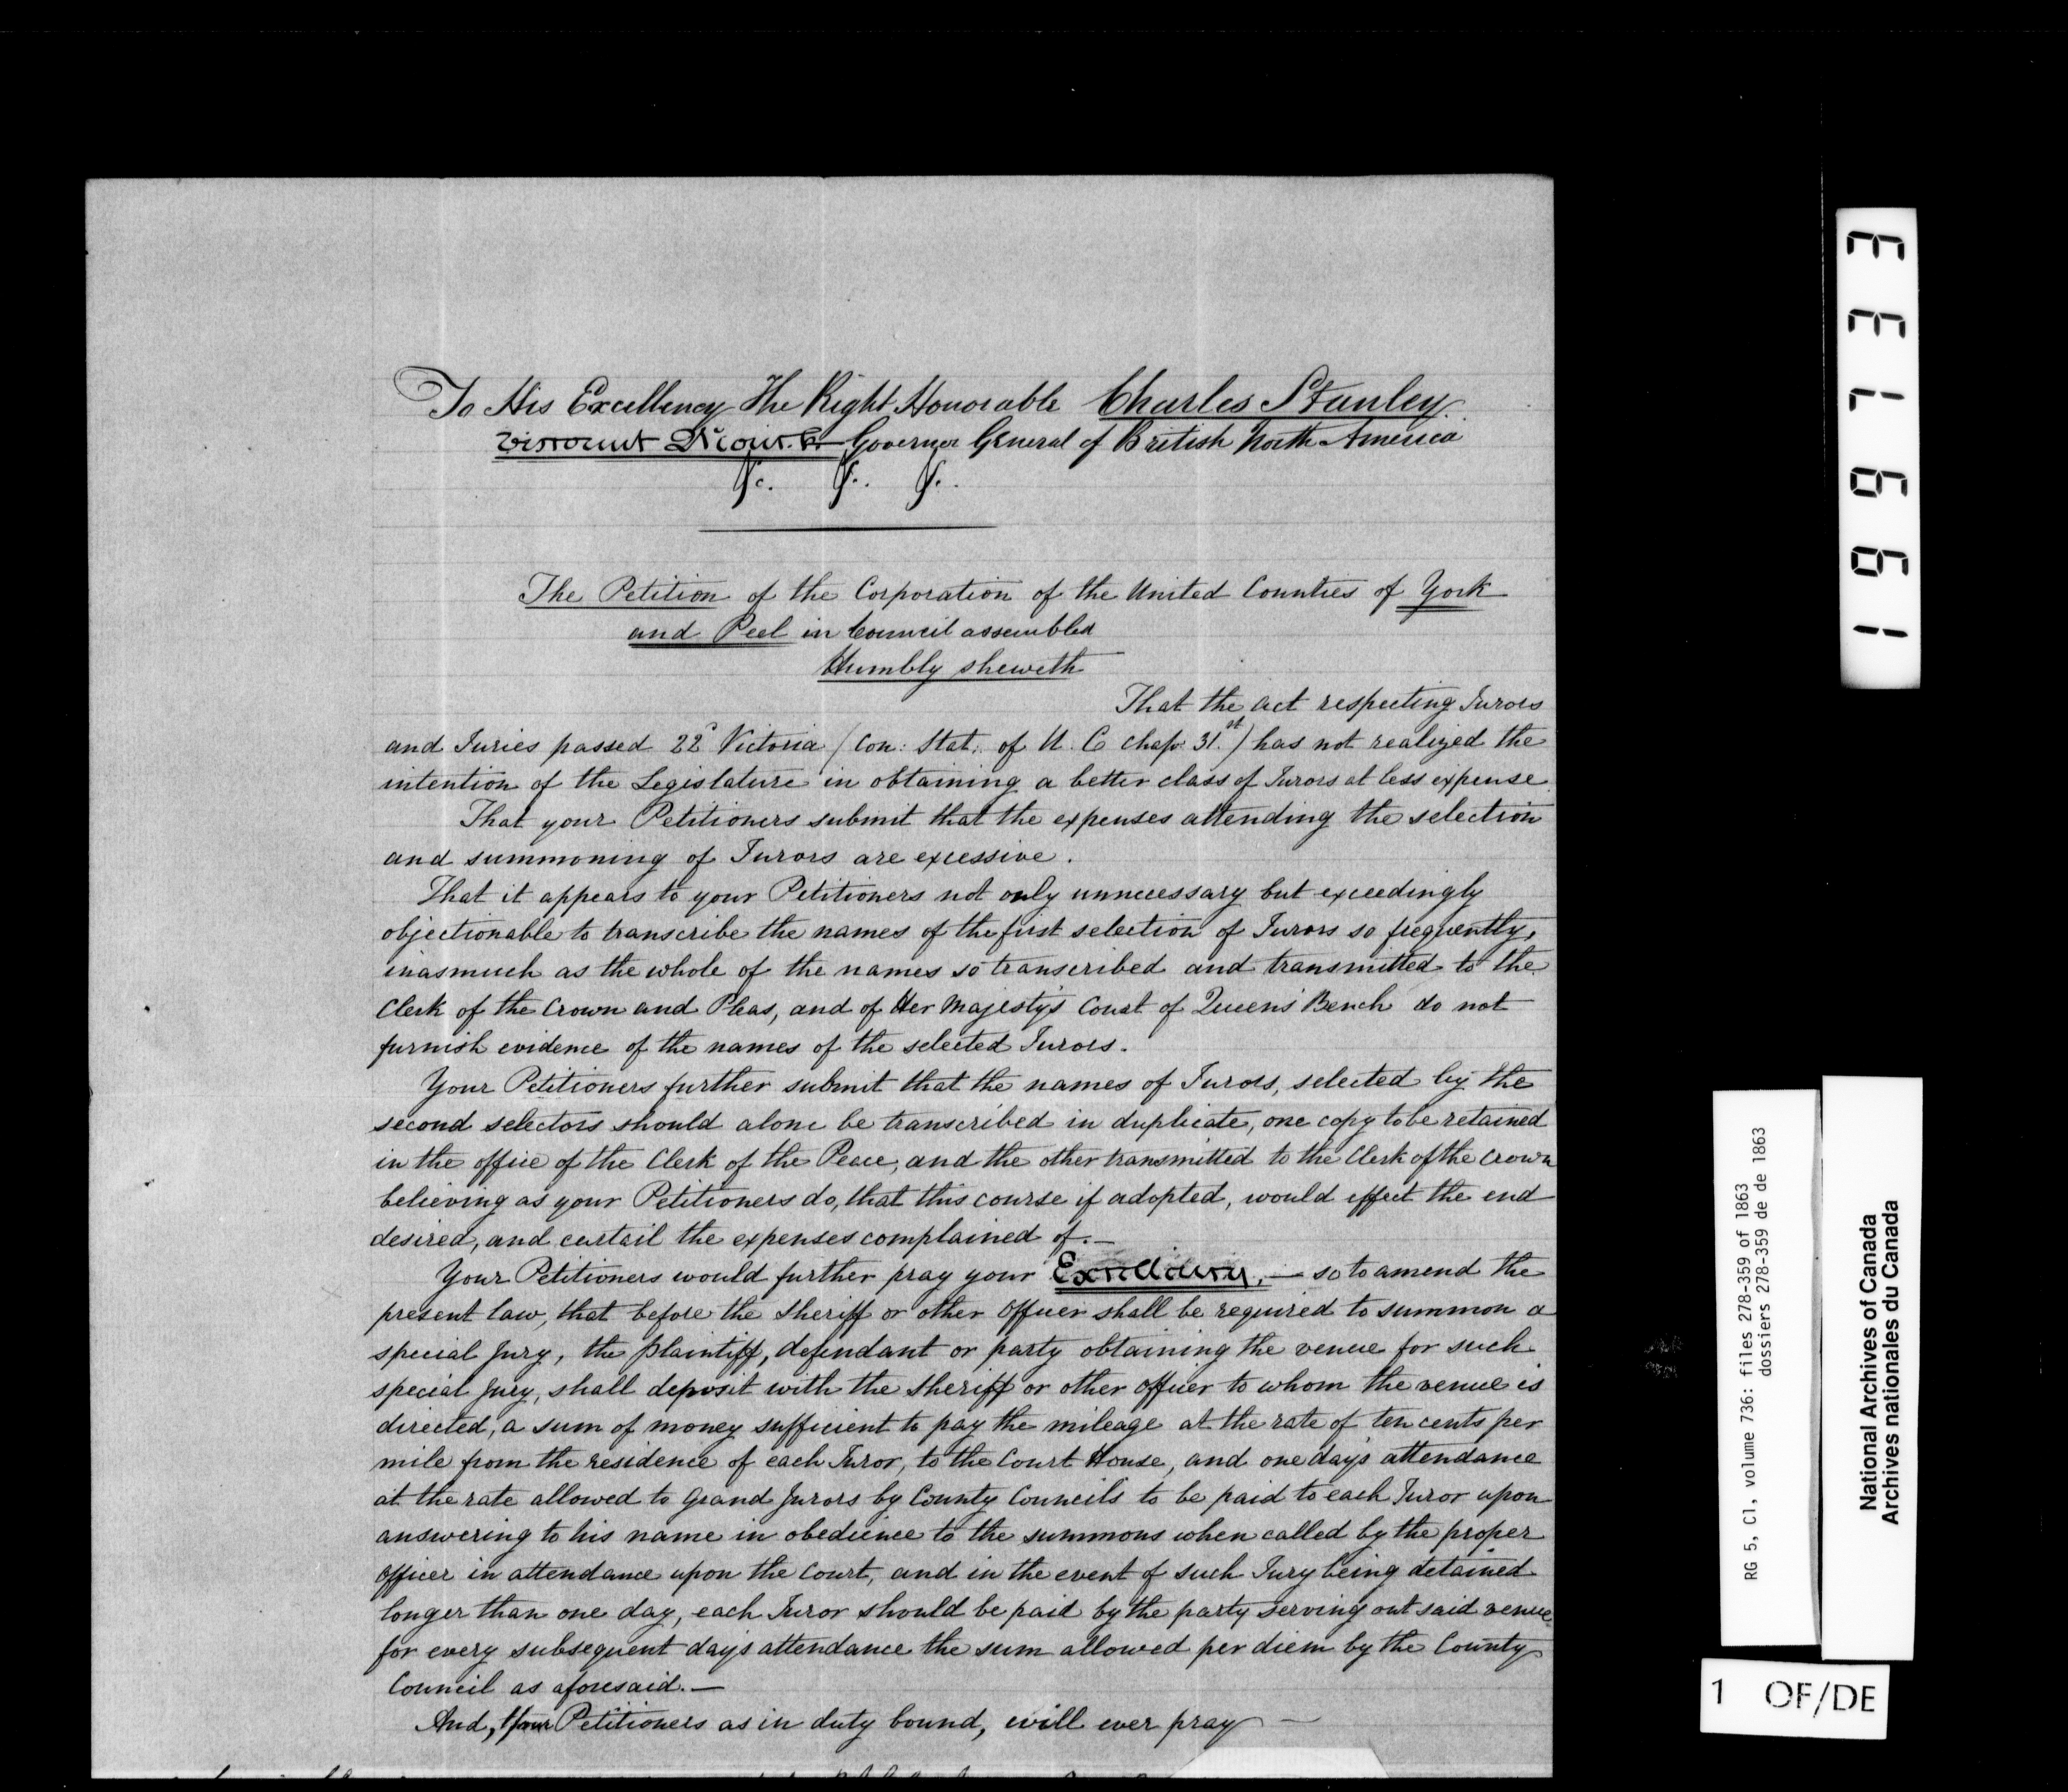 To His Excellency The Right Honorable Charles Stanley
Viscount Monck Governor General of British North America
&c. &c. &c.
The Petition of the Corporation of the United Counties of York
and Peel in Council assembled
Humbly sheweth
That the act respecting Jurors
and Juries passed 22d Victoria (Con: Stat: of U. C chap: 31.st) has not realized the
intention of the Legislature in obtaining a better class of Jurors at less expense.
That your Petitioners submit that the expenses attending the selection
and summoning of Jurors are excessive.
That it appears to your Petitioners not only unnecessary but exceedingly
objectionable to transcribe the names of the first selection of Jurors so frequently,
inasmuch as the whole of the names so transcribed and transmitted to the
Clerk of the Crown and Pleas, and of Her Majesty's Court of Queens' Bench do not
furnish evidence of the names of the selected Jurors.
Your Petitioners further submit that the names of Jurors, selected by the
second selectors should alone be transcribed in duplicate, one copy to be retained
in the office of the Clerk of the Peace, and the other transmitted to the Clerk of the Crown
believing as your Petitioners do, that this course if adopted, would effect the end
desired, and curtail the expenses complained of.—
Your Petitioners would further pray your Excellency, — so to amend the
present law, that before the Sheriff or other Officer shall be required to summon a
special Jury, the plaintiff, defendant or party obtaining the venue for such
special Jury, shall deposit with the Sheriff or other officer to whom the venue is
directed, a sum of money sufficient to pay the mileage at the rate of ten cents per
mile from the residence of each Juror, to the Court House, and one day's attendance
at the rate allowed to Grand Jurors by County Councils to be paid to each Juror upon
answering to his name in obedience to the summons when called by the proper
Officer in attendance upon the Court, and in the event of such Jury being detained
longer than one day, each Juror should be paid by the party serving out said venue
for every subsequent day's attendance the sum allowed per diem by the County
Council as aforesaid.—
And, Your Petitioners as in duty bound, will ever pray —
1 6 6 7 3 3
RG 5, C1, volume 736: files 278-359 of 1863
dossiers 278-359 de de 1863
National Archives of Canada
Archives nationales du Canada
1 OF/DE